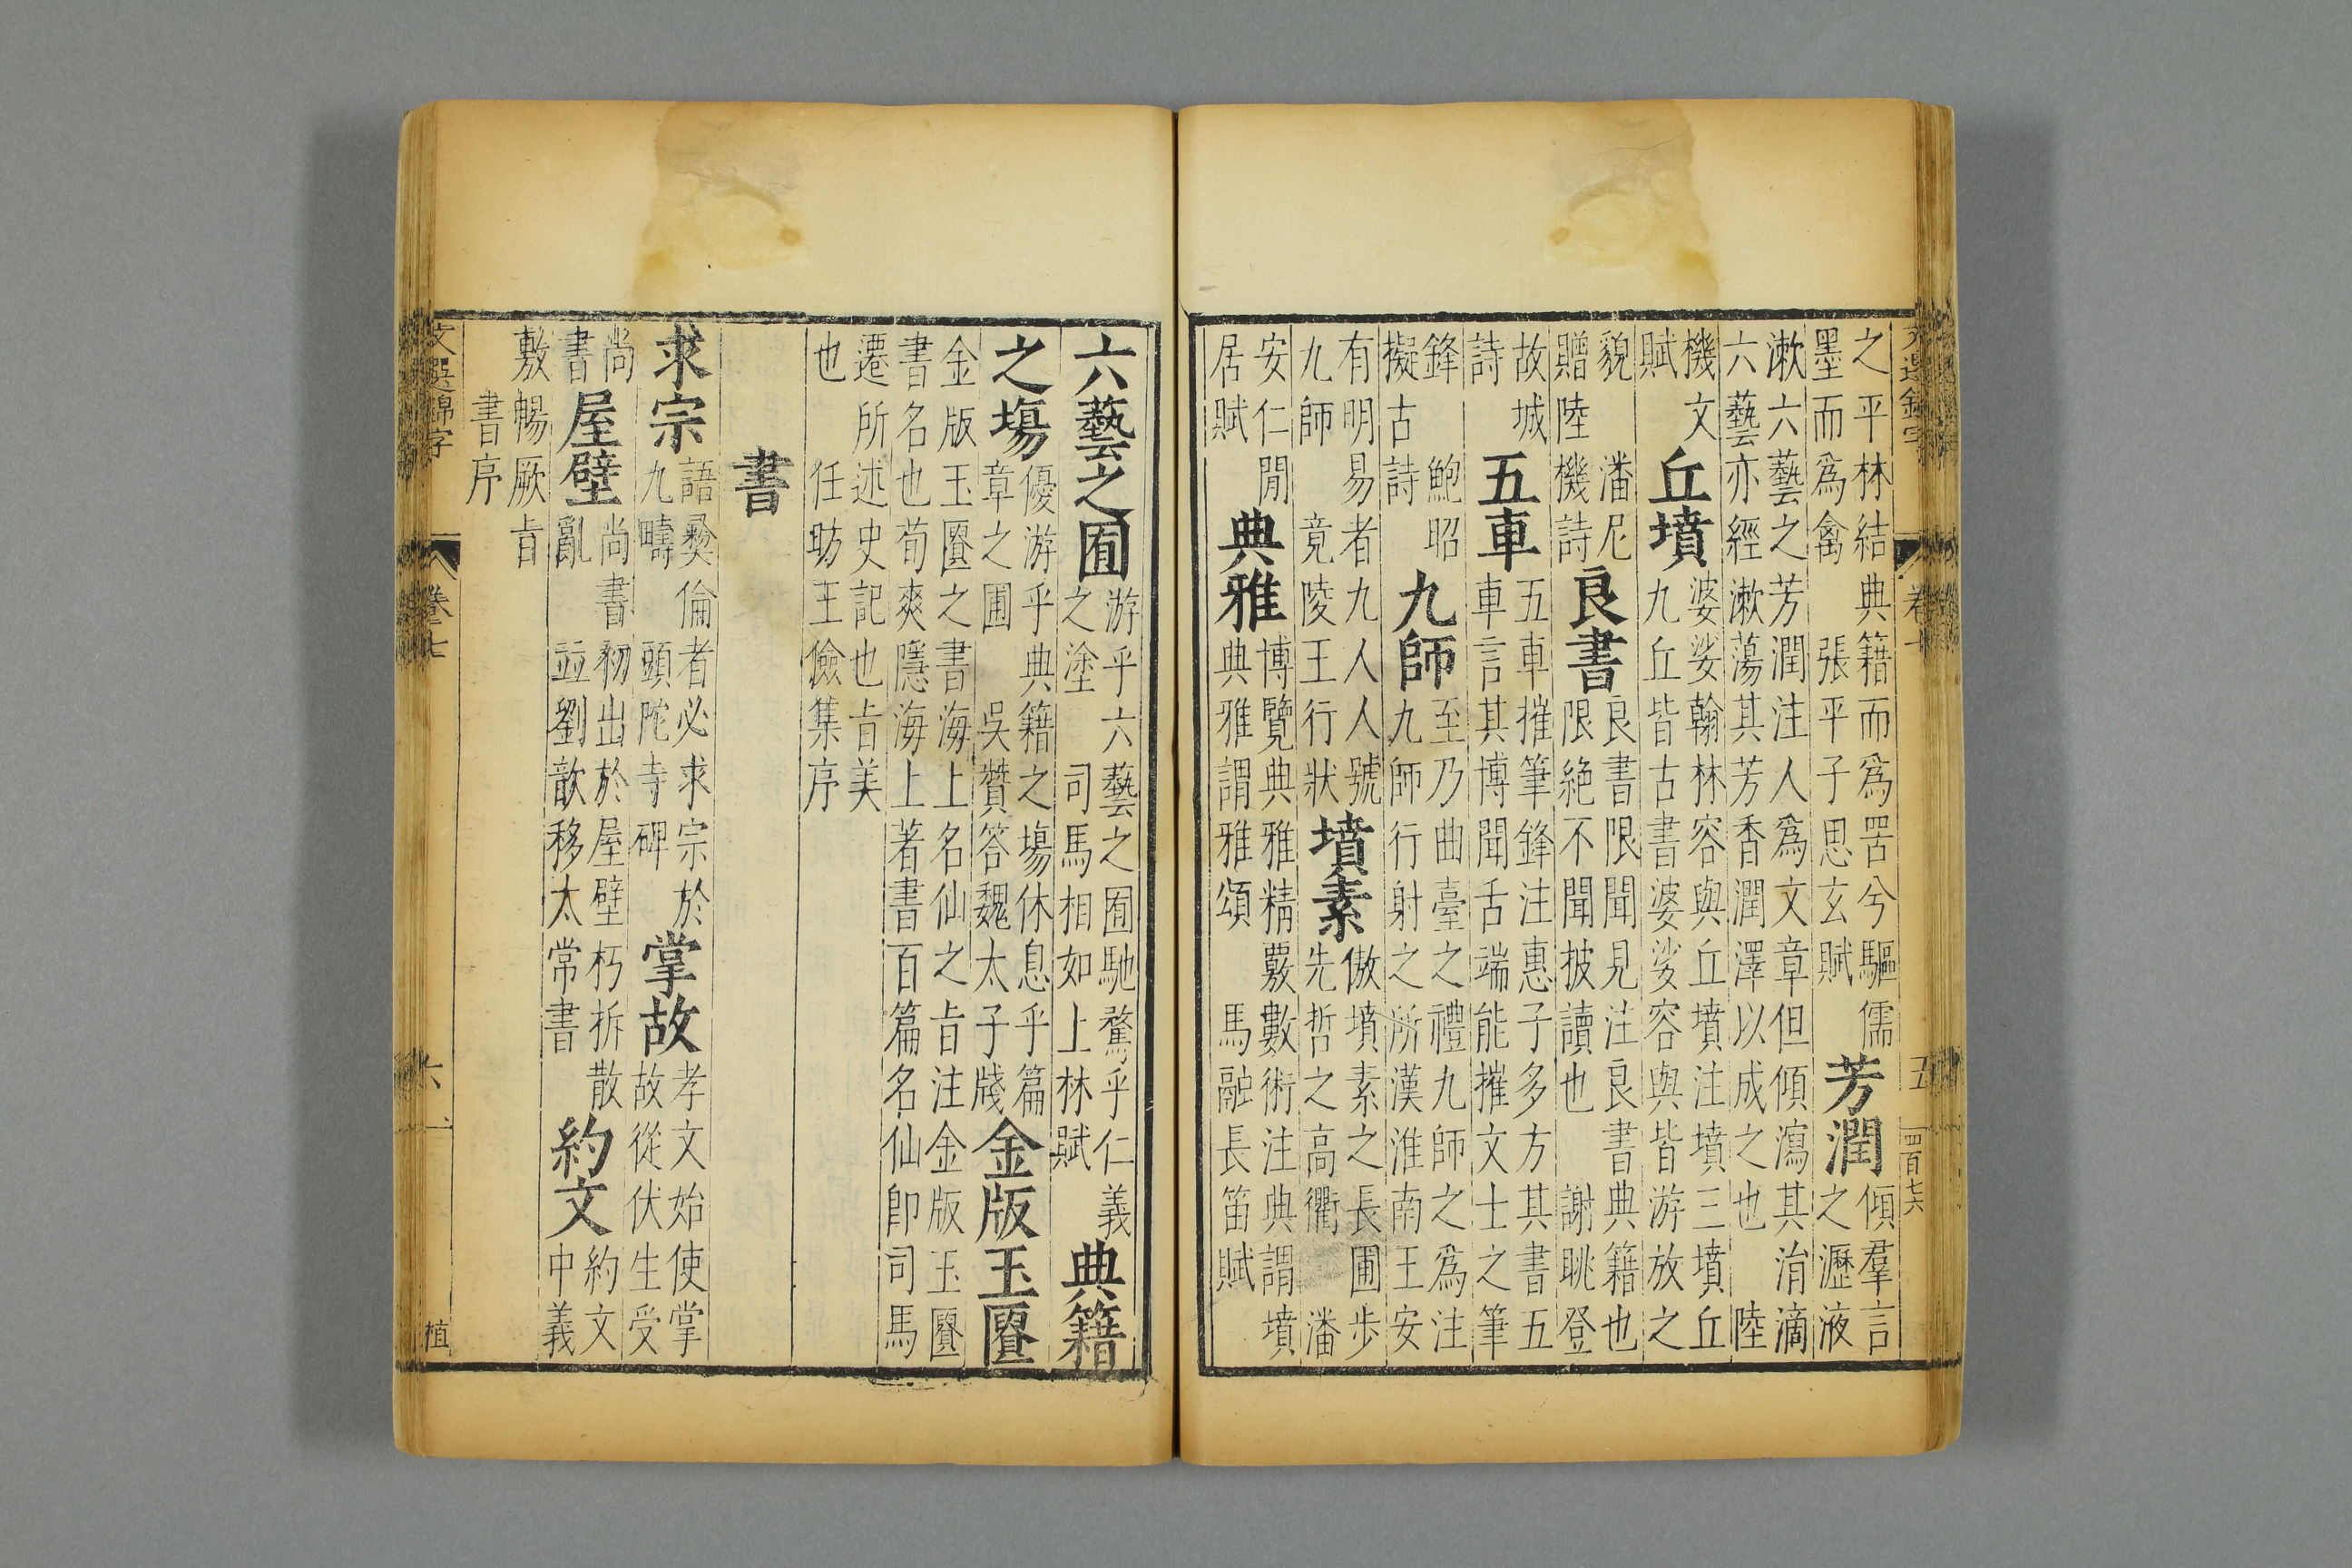 文選錦字 卷七 五 四百七六
之平林結典籍而爲罟兮驅儒墨而爲禽 張平子思玄賦 芳潤 傾羣言之瀝液
漱六藝之芳潤注人爲文章但傾瀉其涓滴六藝亦經漱蕩其芳香潤澤以成之也 陸
機文賦 丘墳 婆娑翰林容與丘墳注墳三墳丘九丘皆古書婆娑容與皆游放之
貌 潘尼贈陸機詩 良書 良書限聞見注良書典籍也限絶不聞披讀也 謝眺登
故城詩 五車 五車摧筆鋒注惠子多方其書五車言其博聞舌端能摧文士之筆
鋒 鮑昭擬古詩 九師 至乃曲臺之禮九師之爲注九師行射之所漢淮南王安
有明易者九人人號九師 竟陵王行狀 墳素 傲墳素之長圃步先哲之高衢 潘
安仁閒居賦 典雅 博覽典雅精覈數術注典謂墳典雅謂雅頌 馬融長笛賦
六藝之囿 游乎六藝之囿馳騖乎仁義之塗 司馬相如上林賦 典籍
之塲 優游乎典籍之塲休息乎篇章之圃 吳贊答魏太子牋 金版玉匱
金版玉匱之書海上名仙之旨注金版玉匱書名也荀爽隱海上著書百篇名仙卽司馬
遷所述史記也旨美也 任昉王儉集序
書
求宗 語彜倫者必求宗於九疇 頭陀寺碑 掌故 孝文始使掌故從伏生受
尚書 屋壁 尚書初出於屋壁朽拆散亂 並劉歆移太常書 約文 約文中義
敷暢厥旨 書序
文選錦字 卷七 六 植